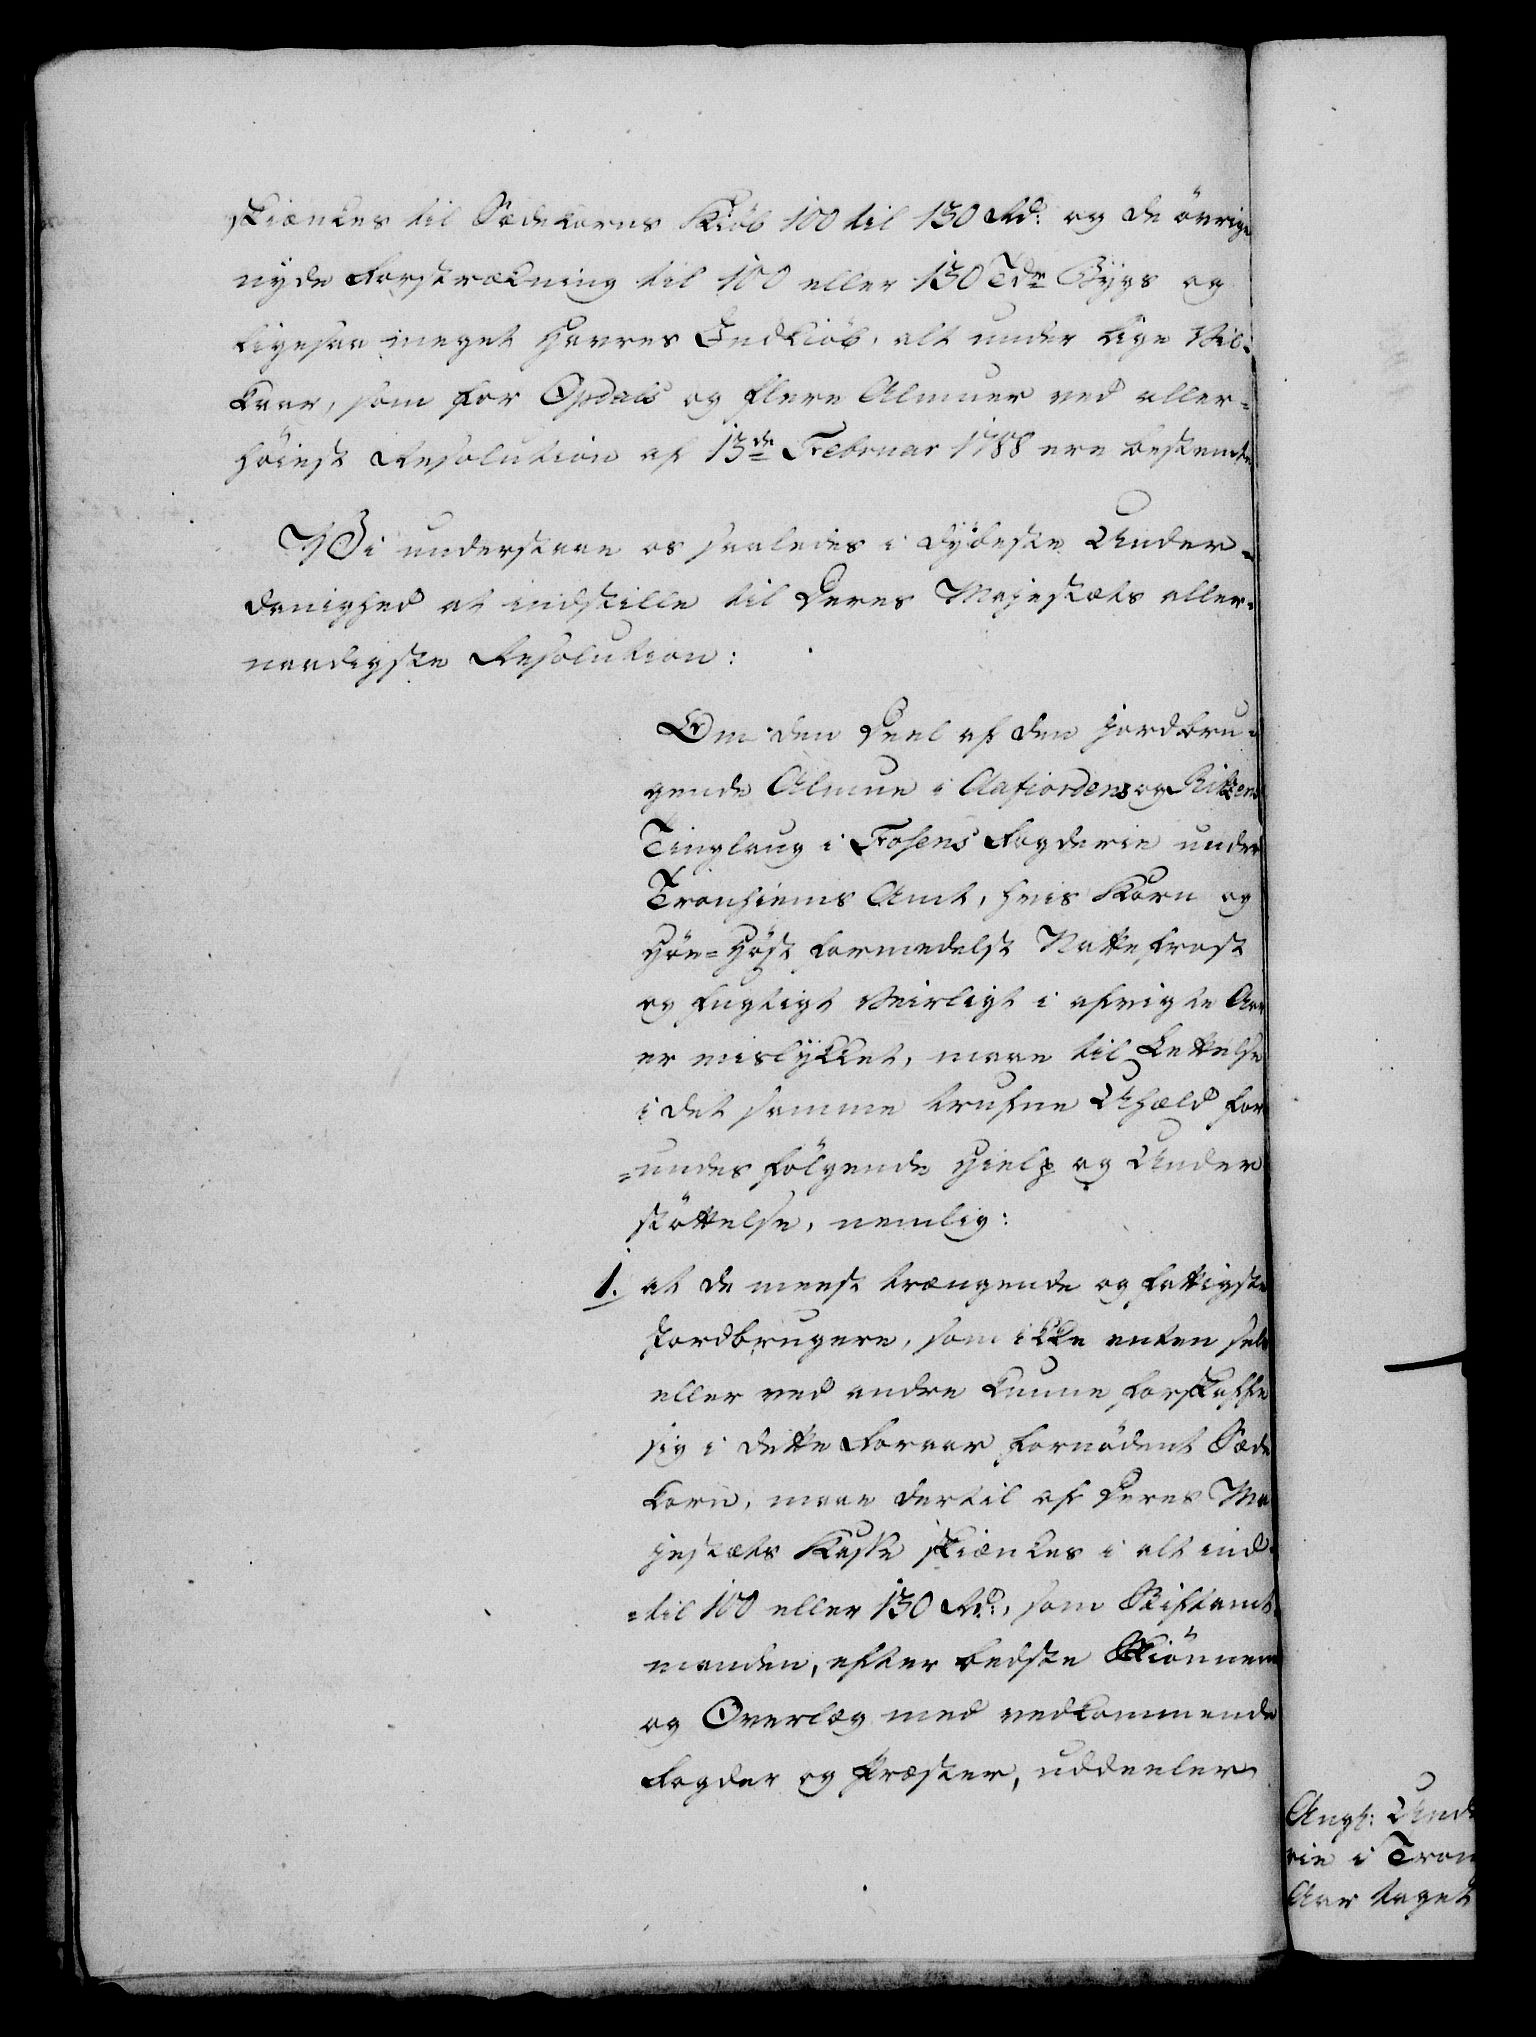 skiænkes til Sædekorns Kiöb 100 til 130 Rd: og de övrige
nyde Forstrækning til 100 eller 130 Tdr Bÿgs og
ligesaa meget Havres Indkiöb, alt under lige Vil-
kaar, som for Opdals og flere Almuer ved aller-
höiest Resolution af 13de Februar 1788 ere bestemte
Vi understaae os saaledes i dÿbeste Under-
danighed at indstille til Deres Majestæts aller-
naadigste Resolution:
Om den Deel af den jordbru-
gende Almue i Aafiordens og Ritzens
Tinglaug i Fosens Fogderie under
Tronhiems Amt, hvis Korn og
Höe-Höst formedelst Nattefrost
og fugtigt Veirligt i afvigte Aar
er mislÿkket, maae til Lettelse
i det samme trufne Uheld for
=undes fölgende Hielp og Under
stöttelse, nemlig:
1. at de meest trængende og fattigste
Jordbrugere, som ikke enten selv
eller ved andre kunne forskaffe
sig i dette Foraar fornödent Sæde
korn, maae dertil af Deres Ma
jestæts Kasse skiænkes i alt ind-
=til 100 eller 130 Rd:, som Stiftamt-
manden, efter bedste Skiönnen
og Overlæg med vedkommende
Fogder og Præster, uddeeler
Angl: Und
rie i Tron
Aar taget